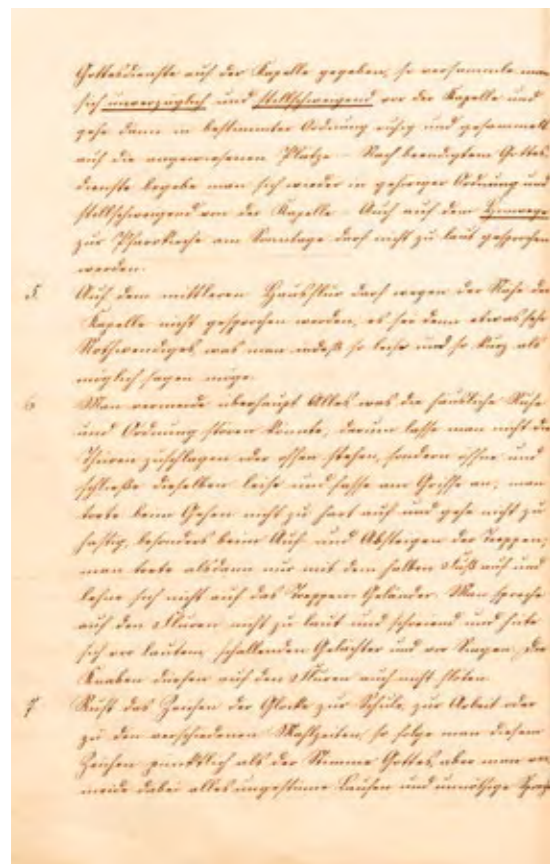 Gottesdienste auf der Kapelle gegeben, so versammle man
sich unverzüglich und stillschweigend vor der Kapelle und
gehe dann in bestimmter Ordnung ruhig und gesammelt
auf die angewiesenen Plätze. – Nach beendigtem Gottes
dienste begebe man sich wieder in gehöriger Ordnung und
stillschweigend von der Kapelle. – Auch auf dem Hinwege
zur Pfarrkirche am Sonntage darf nicht zu laut gesprochen
werden.
5. Auf dem mittleren Hausflur darf wegen der Nähe der
Kapelle nicht gesprochen werden, es sei denn etwas sehr
Nothwendiges, was man indeß so leise und so kurz als
möglich sagen möge.
6 Man vermeide überhaupt Alles was die häusliche Ruhe
und Ordnung stören könnte, darum lasse man nicht die
Thüren zuschlagen oder offen stehen, sondern öffne und
schließe dieselben leise und fasse am Griffe an; man
trete beim Gehen nicht zu hart auf und gehe nicht zu
hastig, besonders beim Auf- und Absteigen der Treppen;
man trete alsdann nur mit dem halben Fuß auf und
lehne sich nicht auf das Treppen-Geländer. Man spreche
auf den Fluren nicht zu laut und schreiend und hüte
sich vor lautem, schallenden Gelächter und vor Singen. Die
Knaben dürfen auf den Fluren auch nicht flöten.
7 Ruft das Zeichen der Glocke zur Schule, zur Arbeit oder
zu den verschiedenen Mahlzeiten, so folge man diesem
Zeichen pünktlich als der Stimme Gottes, aber man ver
meide dabei alles ungestüme Laufen und unnöthige